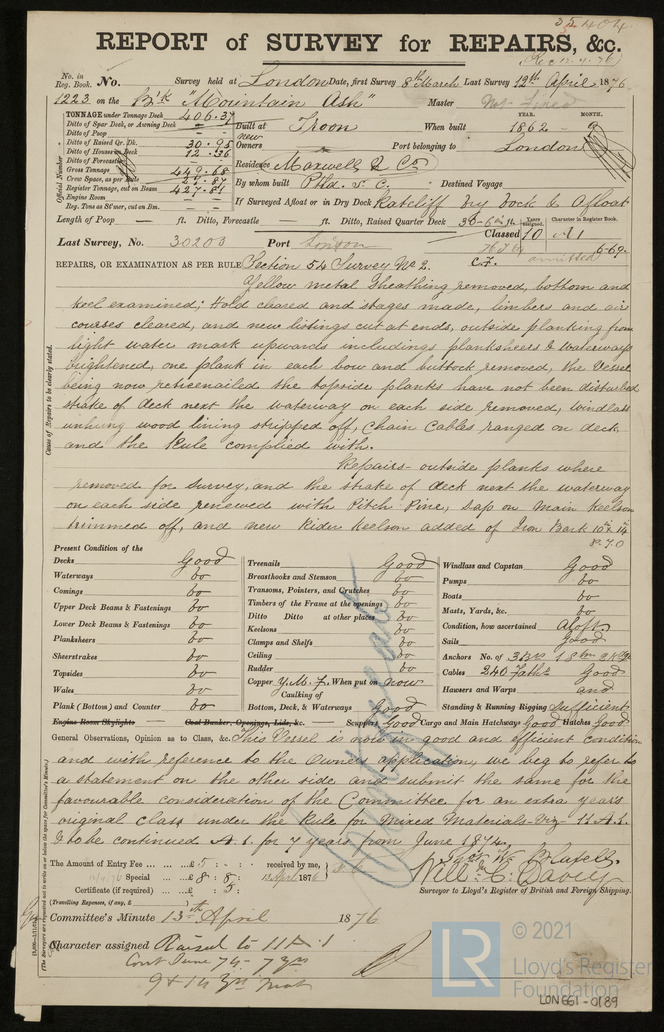 35404
REPORT of SURVEY for REPAIRS, &c.
(Rec 12.4.76)
No. in Reg. Book. No. Survey held at London Date, first Survey 8th March Last Survey 12th April 1876
1223 on the Bk "Mountain Ash" Master Not Fixed
TONNAGE under Tonnage Deck 406.37
Ditto of Spar Deck, or Awning Deck
Ditto of Poop
Ditto of Raised Qr. Dk. 30.95
Ditto of Houses on Deck 12.36
Ditto of Forecastle
Gross Tonnage 449.68
Crew Space, as per Rule
Register Tonnage, cut on Beam 427.81
Engine Room
Reg. Tons as St'mer, cut on Bm.
Official Number
Built at Troon When built YEAR. 1862 MONTH. 9
new Owners Port belonging to London
Residence Maxwell & Co
By whom built Ptld. S. C. Destined Voyage
If Surveyed Afloat or in Dry Dock Ratcliff Dry Dock & Afloat
Length of Poop — ft. Ditto, Forecastle — ft. Ditto, Raised Quarter Deck 36-6 ft. Years assigned. Character in Register Book.
Last Survey, No. 30203 Port London Classed 10 A1
C.F. omitted 6-69
REPAIRS, OR EXAMINATION AS PER RULE Section 54 Survey No 2.
Yellow metal sheathing removed, bottom and
keel examined; Hold cleared and stages made, limbers and air
courses cleared, and new listings cut at ends, outside planking from
light water mark upwards includings planksheers & waterways
brightened, one plank in each bow and buttock removed, the Vessel
being now retreenailed the topside planks have not been disturbed
strake of deck next the waterway on each side removed, windlass
unhung wood lining stripped off, Chain Cables ranged on deck
and the Rule complied with.
Repairs - outside planks where
removed for survey, and the strake of deck next the waterway
on each side renewed with Pitch Pine, sap on main keelson
trimmed off, and new Rider keelson added of Iron Bark 10in x 14in
P.T.O
Cause of Repairs to be clearly stated.
Present Condition of the
Decks Good
Waterways Do
Comings Do
Upper Deck Beams & Fastenings Do
Lower Deck Beams & Fastenings Do
Planksheers Do
Sheerstrakes Do
Topsides Do
Wales Do
Plank (Bottom) and Counter Do
Treenails Good
Breasthooks and Stemson Do
Transoms, Pointers, and Crutches Do
Timbers of the Frame at the openings Do
Ditto Ditto at other places Do
Keelsons Do
Clamps and Shelfs Do
Ceiling Do
Rudder Do
Copper Y.M. F, When put on now
Caulking of
Bottom, Deck, & Waterways Good
Windlass and Capstan Good
Pumps Do
Boats Do
Masts, Yards, &c. Do
Condition, how ascertained Aloft
Sails Good
Anchors No. of 3 Brs 1 Strm 2 Kgs
Cables 240 Faths Good
Hawsers and Warps and
Standing & Running Rigging Sufficient
Engine Room Skylights — Coal Bunker, Openings, Lids, &c. — Scuppers Good Cargo and Main Hatchways Good Hatches Good
General Observations, Opinion as to Class, &c. This Vessel is now in good and efficient condition
and with reference to the Owners application, we beg to refer to
a statement on the other side and submit the same for the
favourable consideration of the Committee for an extra year's
original class under the Rule for Mixed Materials - Viz - 11 A.1.
& to be continued A.1. for 7 years from June 1874.
Certificate
The Amount of Entry Fee ... £ 5 : - : received by me,
Special ... £ 8 : 8 : 12 April 1876
Certificate (if required) ... £ : 5 :
(Travelling Expenses, if any, £ )
Will. C. Davey
Surveyor to Lloyd's Register of British and Foreign Shipping.
Committee's Minute 13th April 1876
Character assigned Raised to 11 A.1
Cont June 74 - 7 yrs
(The Surveyors are requested not to write on or below the space for Committee's Minute.)
LR
© 2021
Lloyd's Register
Foundation
LON661-0189